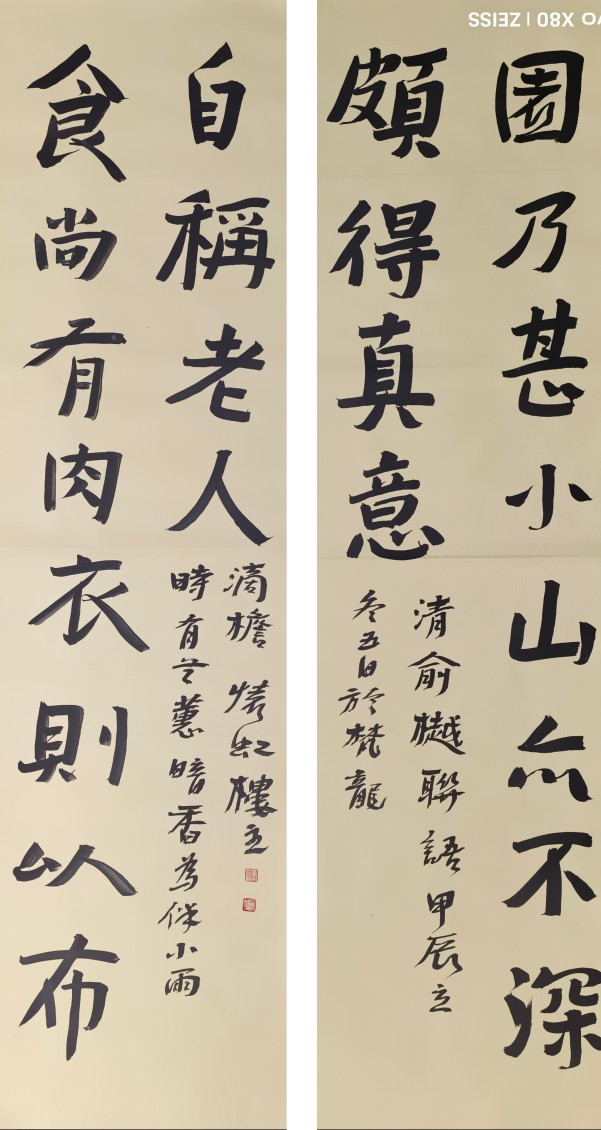 VO X80 | ZEISS
園乃甚小山亦不深
頗得真意
清俞樾聯語甲辰立
冬五日於梵龍
食尚有肉衣則以布
自稱老人
時有蕙暗香為伴小雨
滴檐虹樓